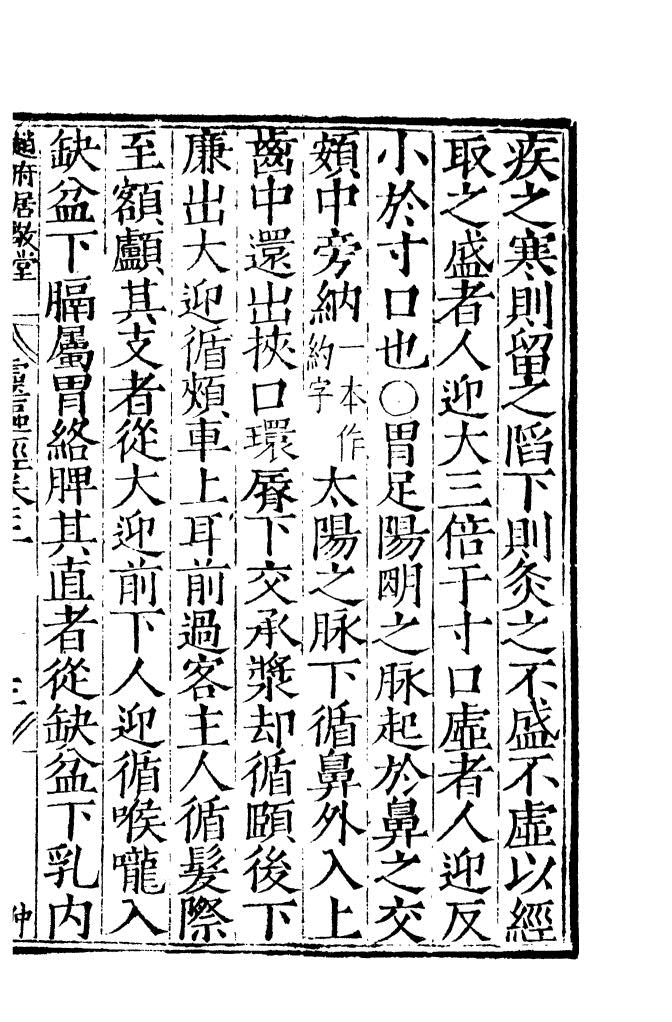 疾之寒則留之陷下則灸之不盛不虛以經
取之盛者人迎大三倍于寸口虛者人迎反
小於寸口也○胃足陽明之脉起於鼻之交
頞中旁納一本作約字太陽之脉下循鼻外入上
齒中還出挾口環脣下交承漿却循頤後下
廉出大迎循頰車上耳前過客主人循髮際
至額顱其支者從大迎前下人迎循喉嚨入
缺盆下膈屬胃絡脾其直者從缺盆下乳内
趙府居敬堂 靈樞經卷三 三 仲